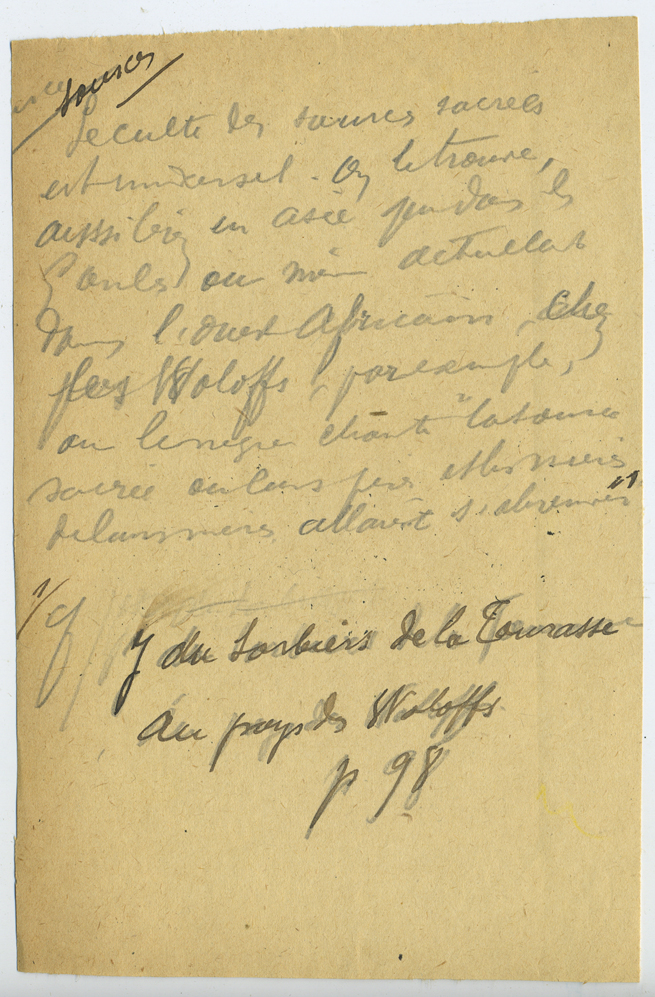 Sources
Le culte des sources sacrées
est universel. On le trouve,
aussi bien en asie que dans les
Gaules ou même actuellement
dans l'ouest Africain, chez
les Woloffs, par exemple,
ou le nègre chante "la source
sacrée ou leurs pères et les mères
de leurs mères allaient s'abreuver" 1
1/ cf
J du Sorbiers de la Tourasse
Au pays des Woloffs
p 98